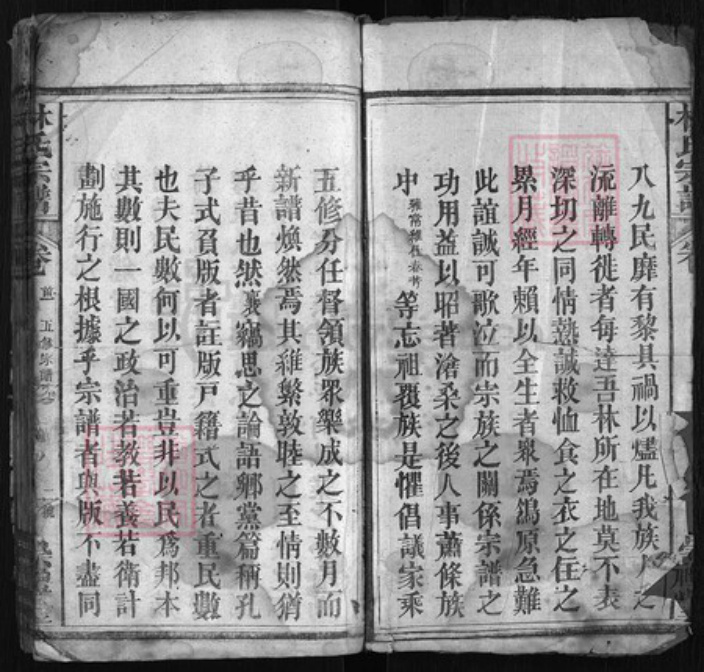 八九民靡有黎具禍以燼凡我族人之
流離轉徙者每達吾林所在地莫不表
深切之同情熱誠救恤食之衣之住之
累月經年賴以全生者衆焉鴒原急難
此誼誠可歌泣而宗族之關係宗譜之
功用益以昭著滄桑之後人事蕭條族
中
等忘祖覆族是懼倡議家乘
五修分任督領族眾樂成之不數月而
新譜煥然焉其維繫敦睦之至情則猶
乎昔也然襄竊思之論語鄉黨篇稱孔
子式負版者註版戸籍式之者重民數
也夫民數何以可重豈非以民爲邦本
其數則一國之政治若教若養若衛計
劃施行之根據乎宗譜者與版不盡同
林氏宗譜
卷
五修宗譜